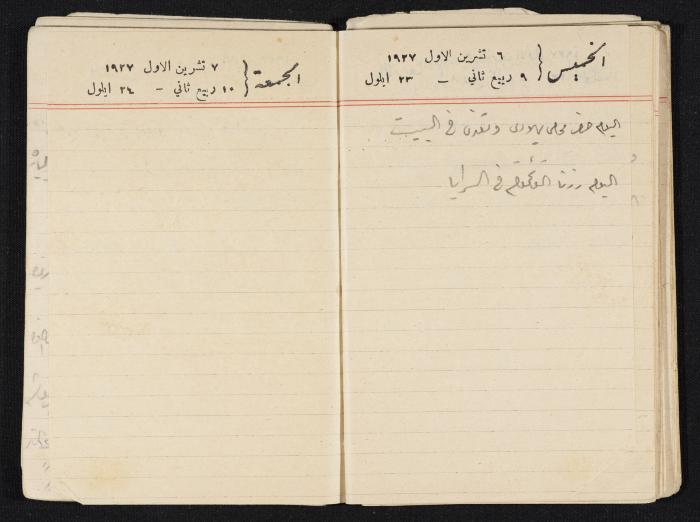 الخميس { ٦ تشرين الاول ١٩٢٧
٩ ربيع ثاني – ٢٣ ايلول
اليوم حضر وتغدى في البيت
اليوم زرنا في السرايا
الجمعة { ٧ تشرين الاول ١٩٢٧
١٠ ربيع ثاني – ٢٤ ايلول